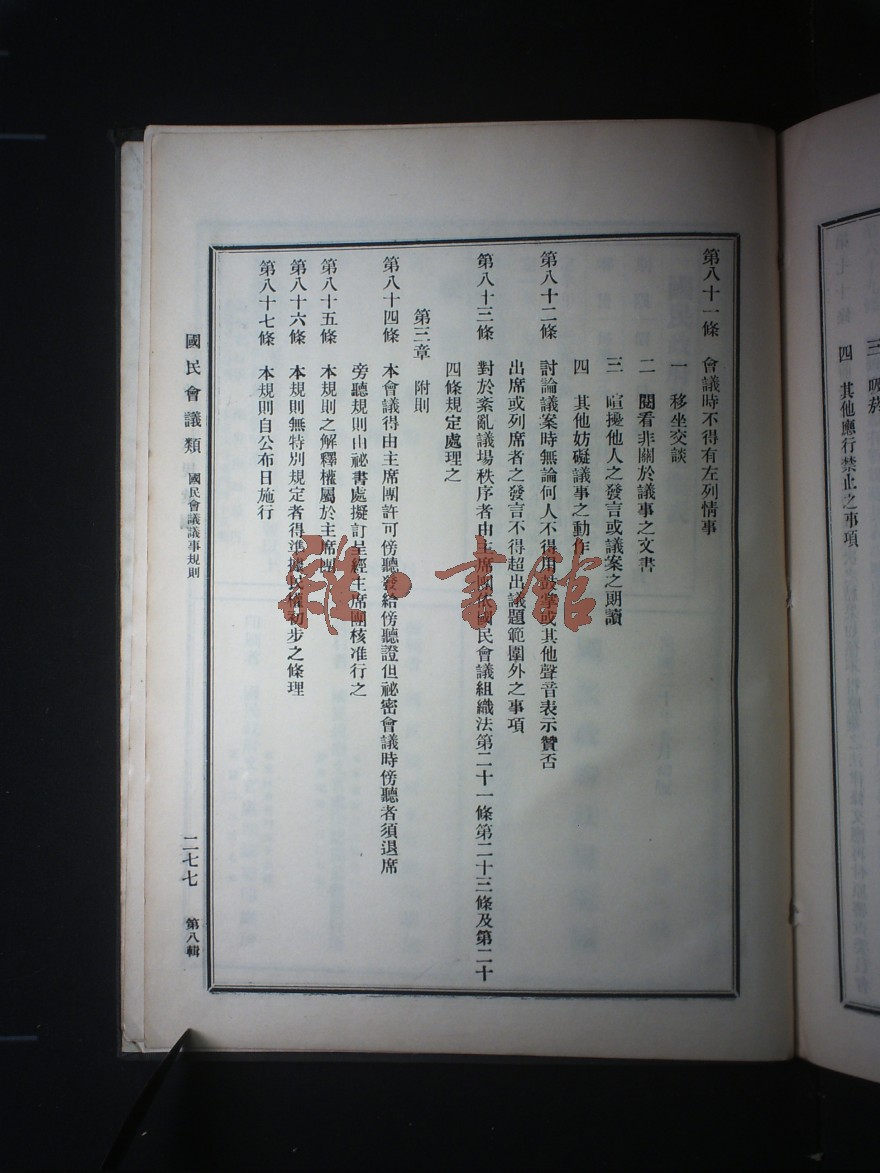 三 吸菸
四 其他應行禁止之事項
第八十一條 會議時不得有左列情事
一 移坐交談
二 閱看非關於議事之文書
三 喧擾他人之發言或議案之朗讀
四 其他妨礙議事之動作
第八十二條 討論議案時無論何人不得用鼓掌或其他聲音表示贊否
出席或列席者之發言不得超出議題範圍外之事項
第八十三條 對於紊亂議場秩序者由主席團依國民會議組織法第二十一條第二十三條及第二十
四條規定處理之
第三章 附則
第八十四條 本會議得由主席團許可傍聽發給傍聽證但祕密會議時傍聽者須退席
旁聽規則由祕書處擬訂呈經主席團核准行之
第八十五條 本規則之解釋權屬於主席團
第八十六條 本規則無特別規定者得準據民權初步之條理
第八十七條 本規則自公布日施行
國民會議類 國民會議議事規則 二七七 第八輯
書館